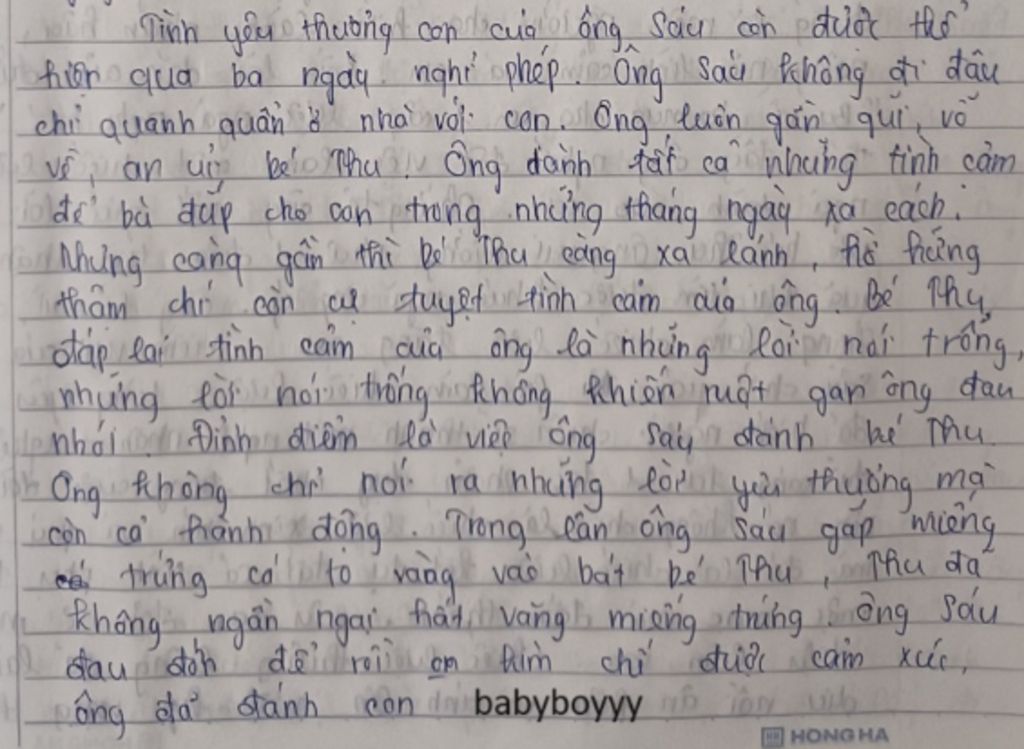 Tình yêu thương con của ông Sáu còn được thể
hiện qua ba ngày nghỉ phép. Ông Sáu không đi đâu
chỉ quanh quẩn ở nhà với con. Ông luôn gần gũi, vỗ
về, an ủi bé Thu. Ông dành tất cả những tình cảm
để bù đắp cho con trong những tháng ngày xa cách.
Nhưng càng gần thì bé Thu càng xa lánh, hờ hững
thậm chí còn cự tuyệt tình cảm của ông. Bé Thu
đáp lại tình cảm của ông là những lời nói trống,
những lời nói trống không khiến ruột gan ông đau
nhói. Đỉnh điểm là việc ông Sáu đánh bé Thu.
Ông không chỉ nói ra những lời yêu thương mà
còn cả hành động. Trong lần ông Sáu gắp miếng
trứng cá to vàng vào bát bé Thu, Thu đã
không ngần ngại hất văng miếng trứng ông Sáu
đau đớn để rồi kìm chế được cảm xúc,
ông đã đánh con babyboyyy
HONG HA